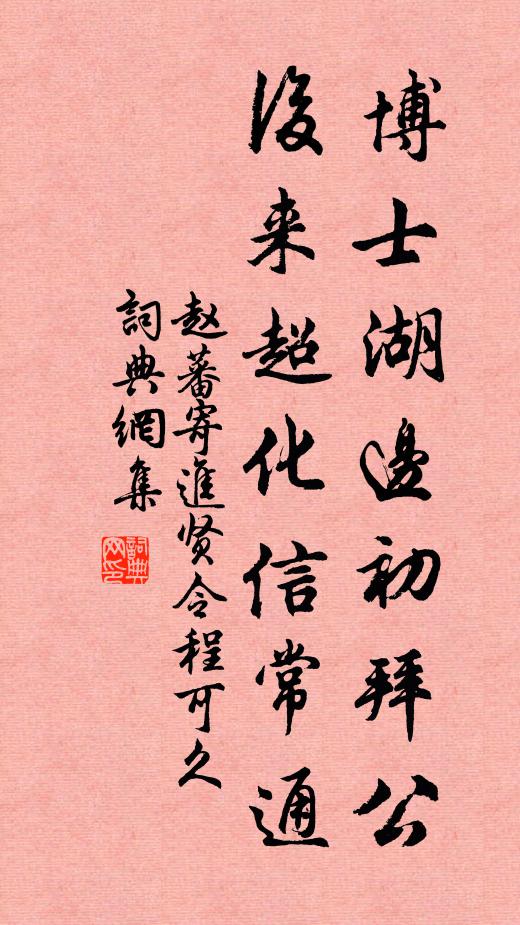 博士湖邊初拜公
後来超化信常通
赵蕃寄進贤令程可久
詞典網集
詞典网印